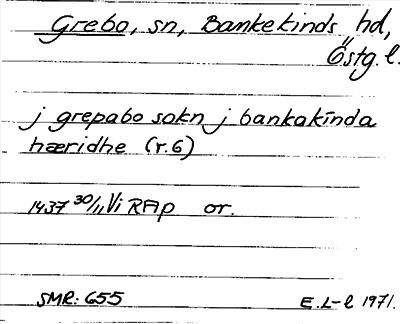 Grebo, sn, Bankekinds hd,
Östg. l.
j grepabo sokn j bankakīnda
hæridhe (r.6)
1437 30/11 Vi RAp or.
SMR: 655 E. L-l 1971.